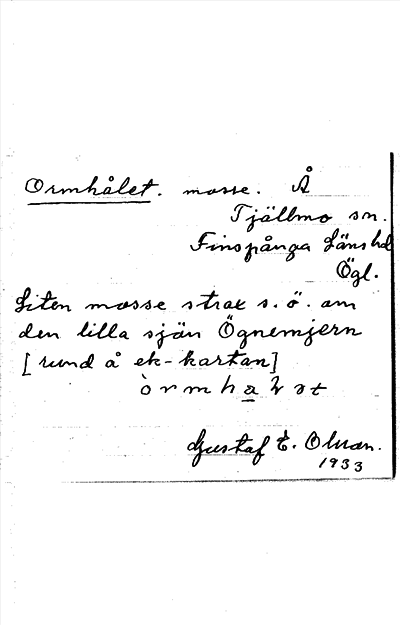 Ormhålet. mosse. Å
Tjällmo sn.
Finspånga Läns hd
Ögl.
Liten mosse strax s.ö. om
den lilla sjön Ögnemjern
[rund å ek-kartan]
Gustaf E. Olman.
1933